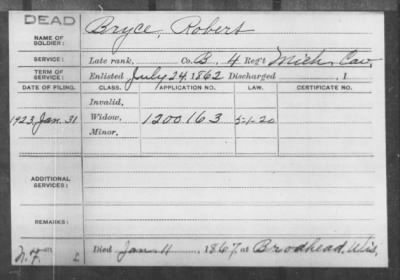 DEAD
NAME OF SOLDIER: Bryce, Robert
SERVICE: Late rank, Co. B, 4 Reg't Mich. Cav.
TERM OF SERVICE: Enlisted July 24, 1862 Discharged , 1
DATE OF FILING. CLASS. APPLICATION NO. LAW. CERTIFICATE NO.
Invalid,
1923, Jan. 31 Widow, 1200163 5-1-20
Minor,
ADDITIONAL SERVICES:
REMARKS:
Died Jan 11, 1867, at Brodhead, Wis.